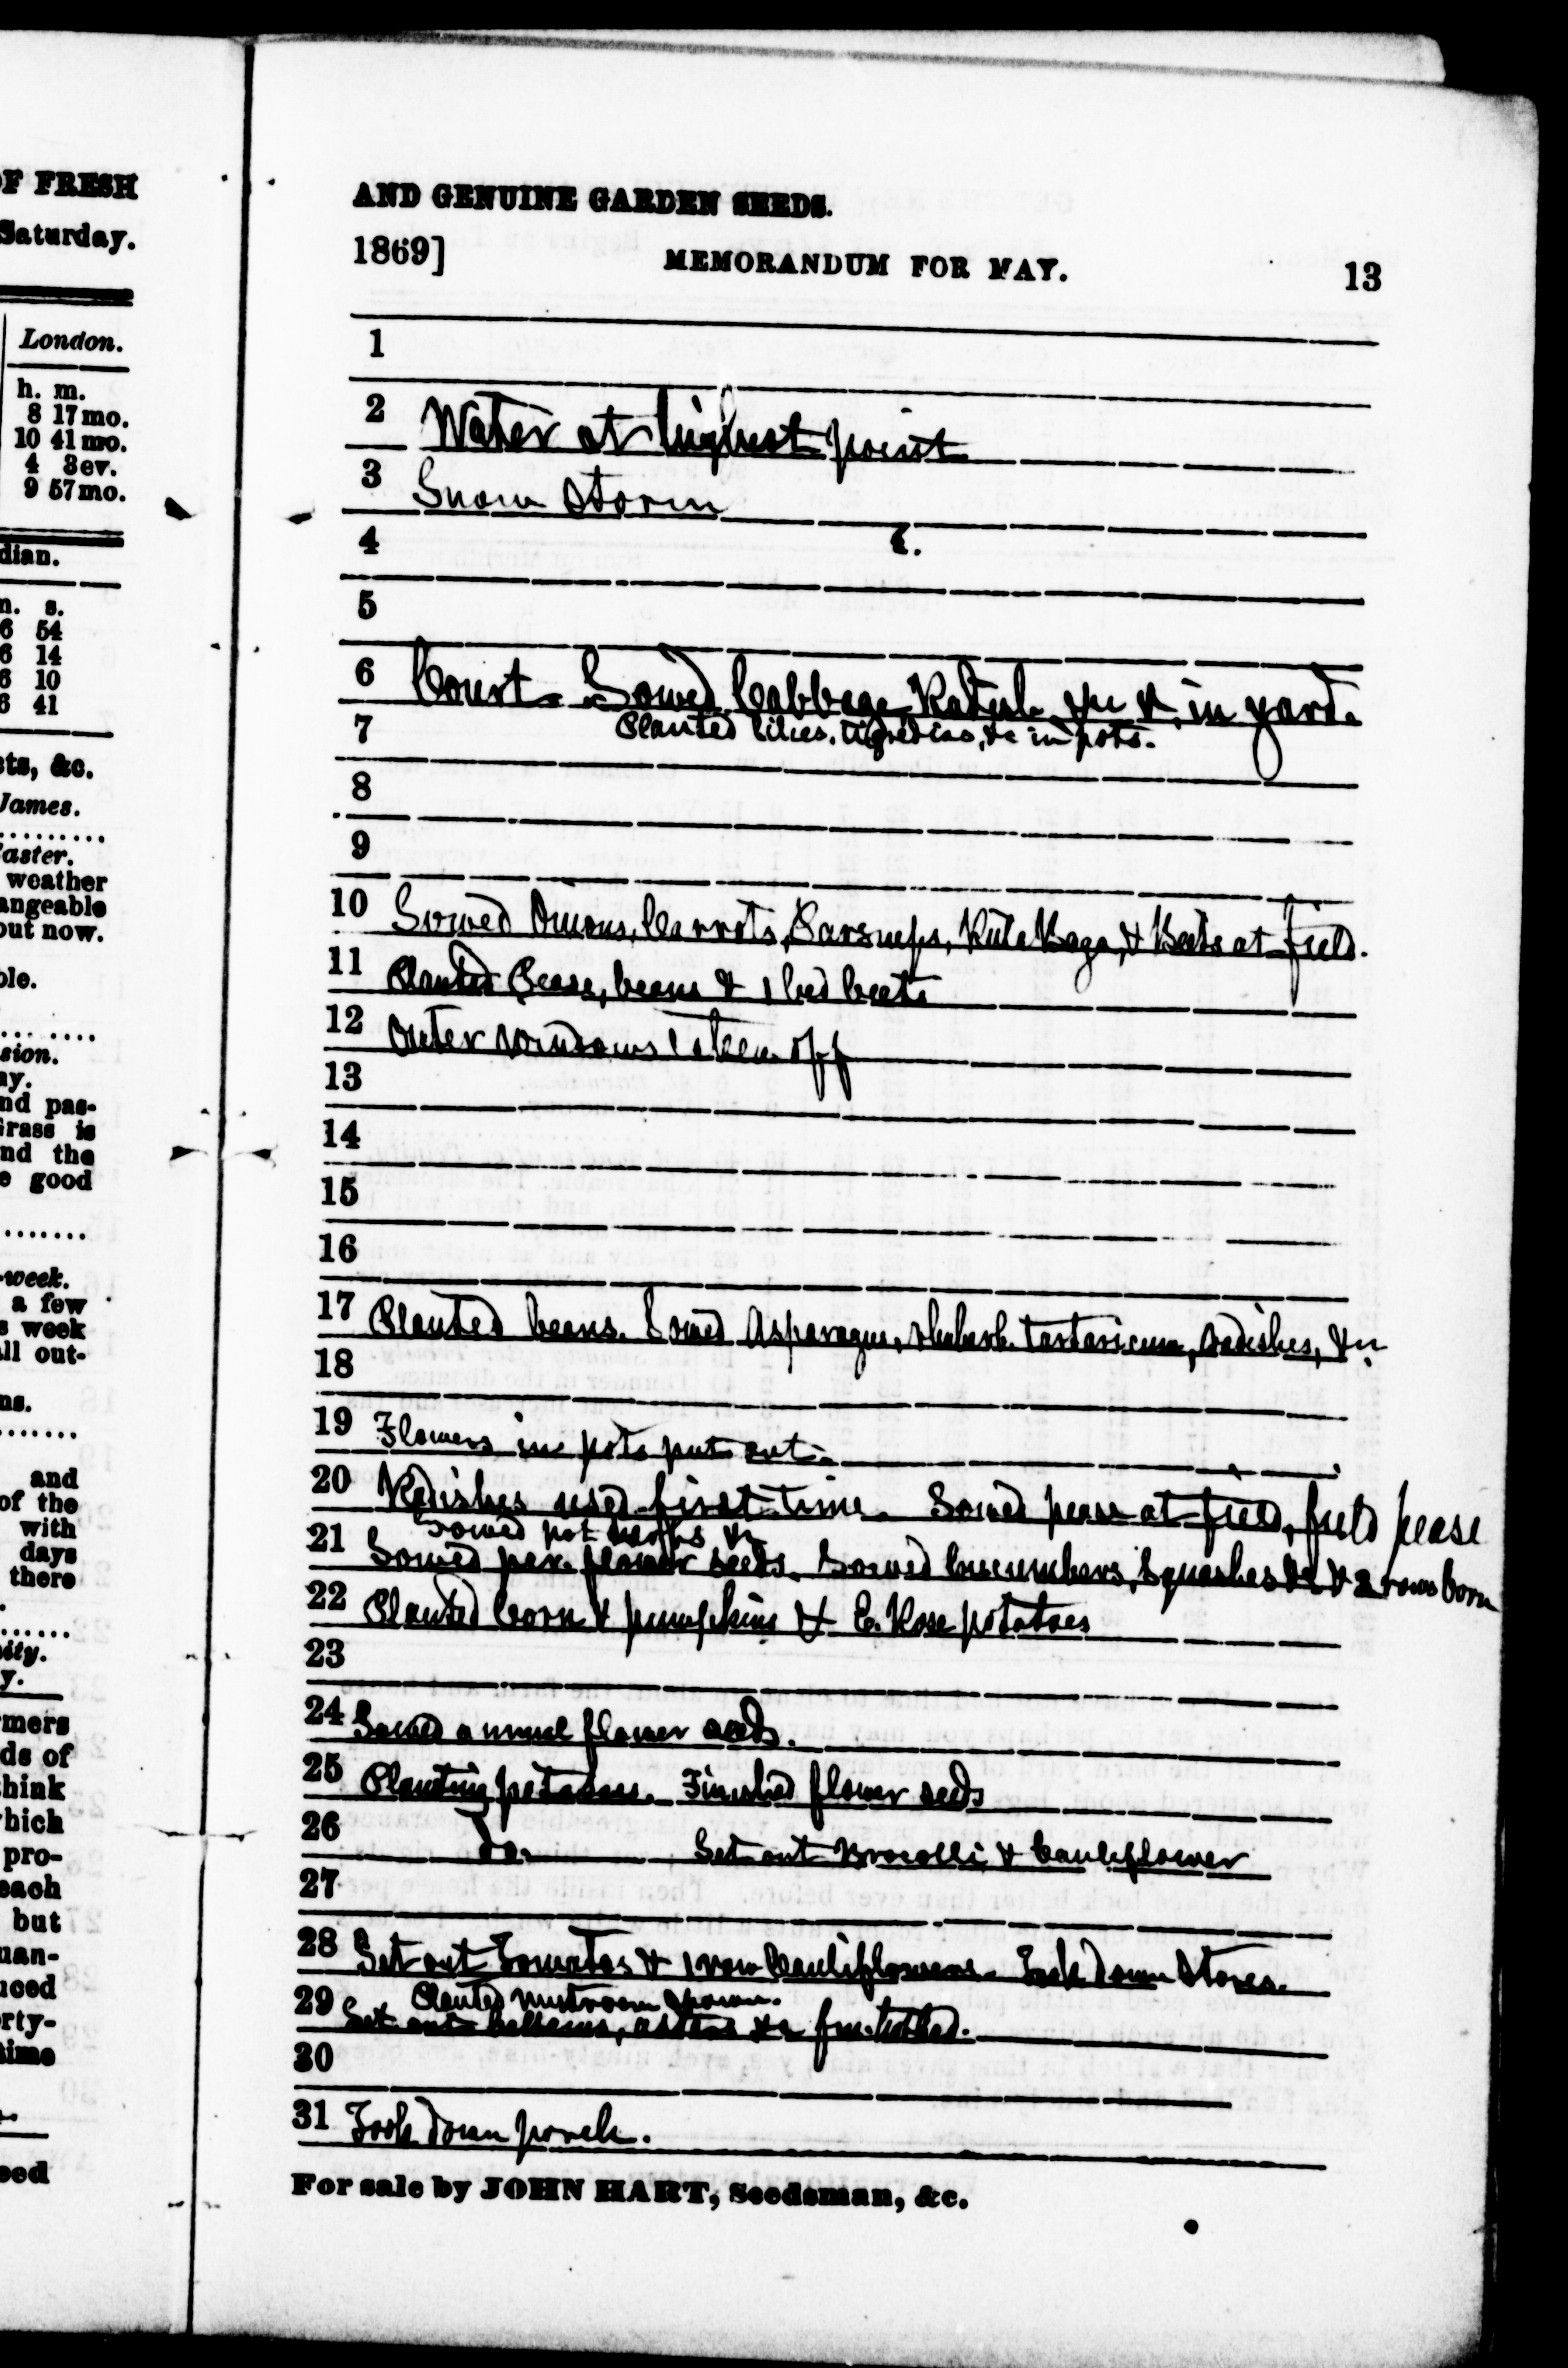 OF FRESH
Saturday.
London.
h. m.
8 17mo.
10 41mo.
4 3ev.
9 57mo.
dian.
m. s.
6 54
6 14
6 10
6 41
ts, &c.
James.
.........
Easter.
weather
angeable
out now.
ble.
.... ....
sion.
ay.
nd pas-
Grass is
nd the
e good
.......
-week.
a few
s week
ll out-
ns.
.......
and
of the
with
days
there
.......
ity.
y.
mers
ds of
think
which
pro-
each
but
man-
uced
rty-
time
eed
AND GENUINE GARDEN SEEDS.
1869] MEMORANDUM FOR MAY. 13
1
2 Water at highest point
3 Snow storm
4
5
6 Court. Sowed Cabbage, Radish &c &c in yard.
7 Planted lilies, tigredias, &c in pots.
8
9
10 Sowed Onions, Carrots, Parsneps, Ruta Baga, & Beets at Field.
11 Planted Pease, beans & 1 bed beets
12 Outer windows taken off
13
14
15
16
17 Planted beans. Sowed Asparagus, rhubarb, tartaricum, radishes, &c.
18
19 Flowers in pots put out.
20 Radishes used first time. Sowed pease at field, field pease
Sowed pot herbs &c
21 Sowed per. flower seeds. Sowed Cucumbers, Squashes &c & 2 rows Corn
22 Planted Corn & pumpkins & E. Rose potatoes
23
24 Sowed annual flower seeds.
25 Planting potatoes. Finished flower seeds
26 Do. Set out Brocolli & Cauliflower
27
28 Set out Tomatos & 1 row Cauliflowers. Took down Stoves.
Planted mushroom spawn.
29 Set out balsams, asters &c fm. hotbed.
30
31 Took down porch.
For sale by JOHN HART, Seedsman, &c.